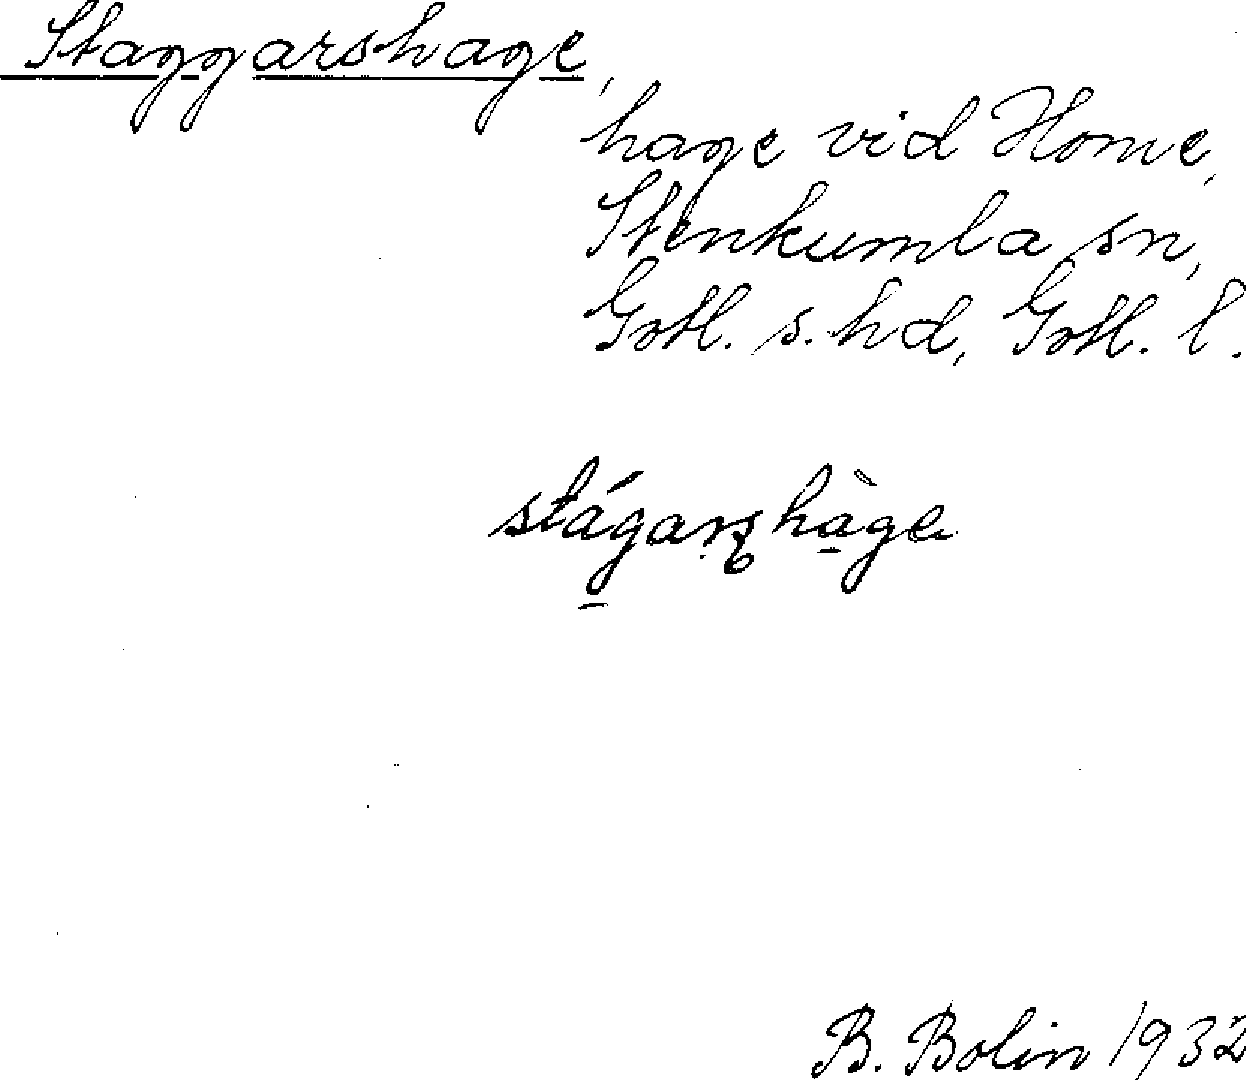 Staggarshage,
hage vid Home,
Stenkumla sn,
Gotl. s. hd, Gotl. l.
stág̱arʂhà̱ge
B. Bolin 1932